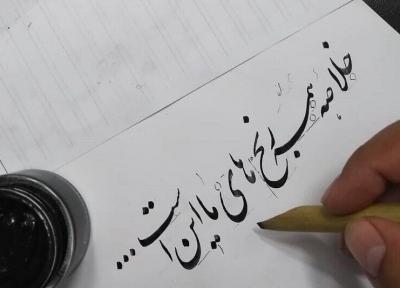 خلاصه همه رنج های ما این است...